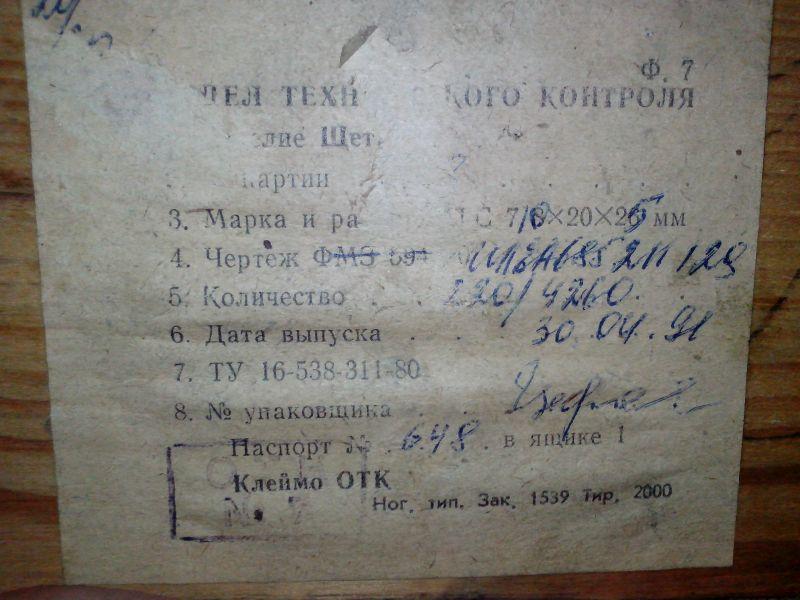 Ф. 7
ДЕЛ ТЕХН КОГО КОНТРОЛЯ
елие Щет
партии
3. Марка и ра 7/8×20×25 мм
4. Чертеж ФМЗ 694
5. Количество 220/4260
6. Дата выпуска 30.04.91
7. ТУ 16-538-311-80
8. № упаковщика
Паспорт № 648 в ящике 1
Клеймо ОТК
Ног. тип. Зак. 1539 Тир. 2000